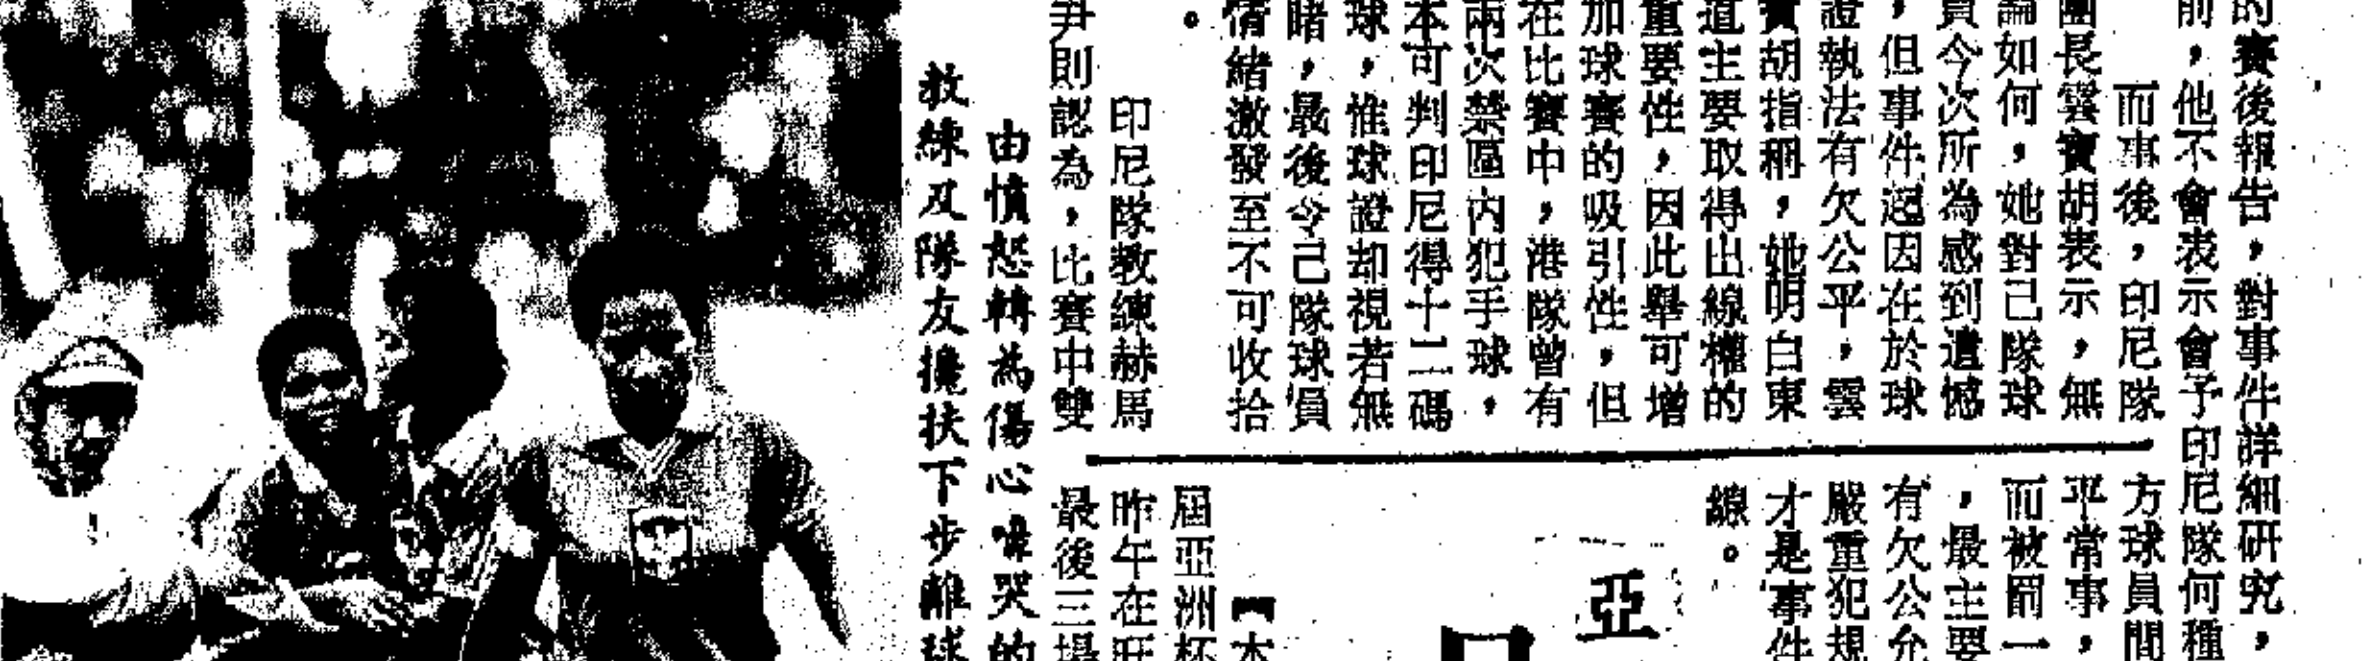 的賽後報告，對事件詳細研究，
前，他不會表示會予印尼隊何種
而事後，印尼隊
團長雲寶胡表示，無
論如何，她對己隊球
員今次所為感到遺憾
，但事件起因在於球
證執法有欠公平，雲
寶胡指稱，她明白東
道主要取得出線權的
重要性，因此舉可增
加球賽的吸引性，但
在比賽中，港隊曾有
兩次禁區內犯手球，
本可判印尼得十二碼
球，惟球證却視若無
睹，最後令己隊球員
情緒激發至不可收拾
。
印尼隊教練赫馬
尹則認為，比賽中雙
方球員間
平常事，
而被罰一
，最主要
有欠公允
嚴重犯規
才是事件
線。
亞
【本
屆亞洲杯
昨午在旺
最後三場
由憤怒轉為傷心嚎哭的
教練及隊友攙扶下步離球